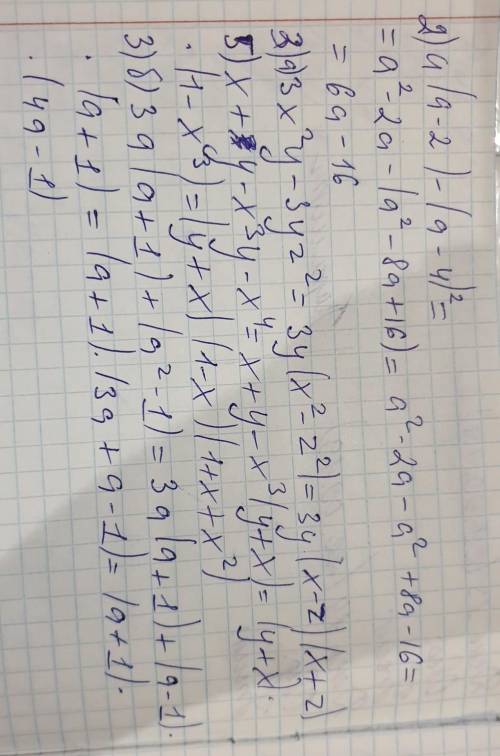 2) a(a-2)-(a-4)²=
=a²-2a-(a²-8a+16)=a²-2a-a²+8a-16=
=6a-16
3)а)3x²y-3yz²=3y(x²-z²)=3y·(x-z)(x+z)
5)x+y-x³y-x⁴=x+y-x³(y+x)=(y+x)·
·(1-x³)=(y+x)(1-x)(1+x+x²)
3)б)3a(a+1)+(a²-1)=3a(a+1)+(a-1)·
·(a+1)=(a+1)·(3a+a-1)=(a+1)·
·(4a-1)